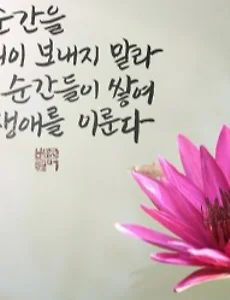 순간을
이 보내지 말라
순간들이 쌓여
생애를 이룬다